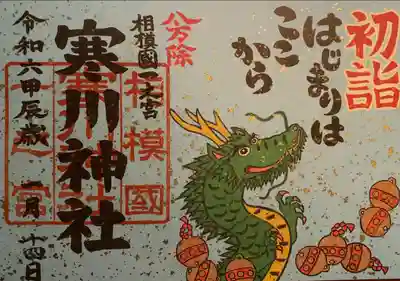 初詣
はじまりは
ここ
から
八方除
相模國一之宮
寒川神社
令和六甲辰歳 一月十四日
相模國